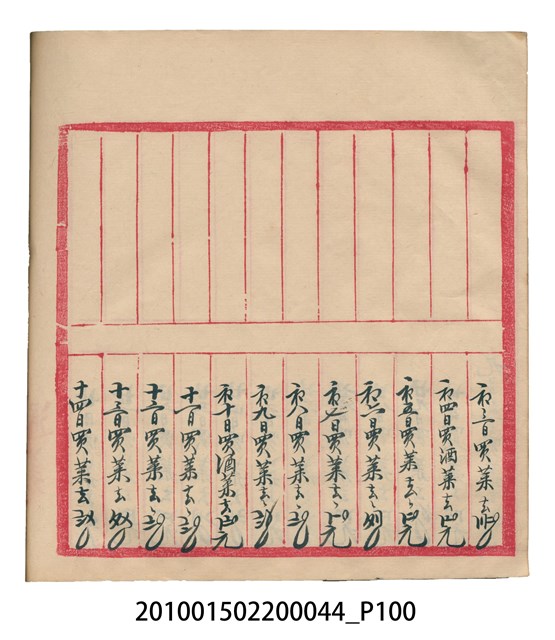 初三日買菜去
初四日買酒菜去元
初五日買菜去元
初六日買菜去
初七日買菜去元
初八日買菜去
初九日買菜去
初十日買酒菜去元
十一日買菜去
十二日買菜去
十三日買菜去
十四日買菜去
201001502200044_P100